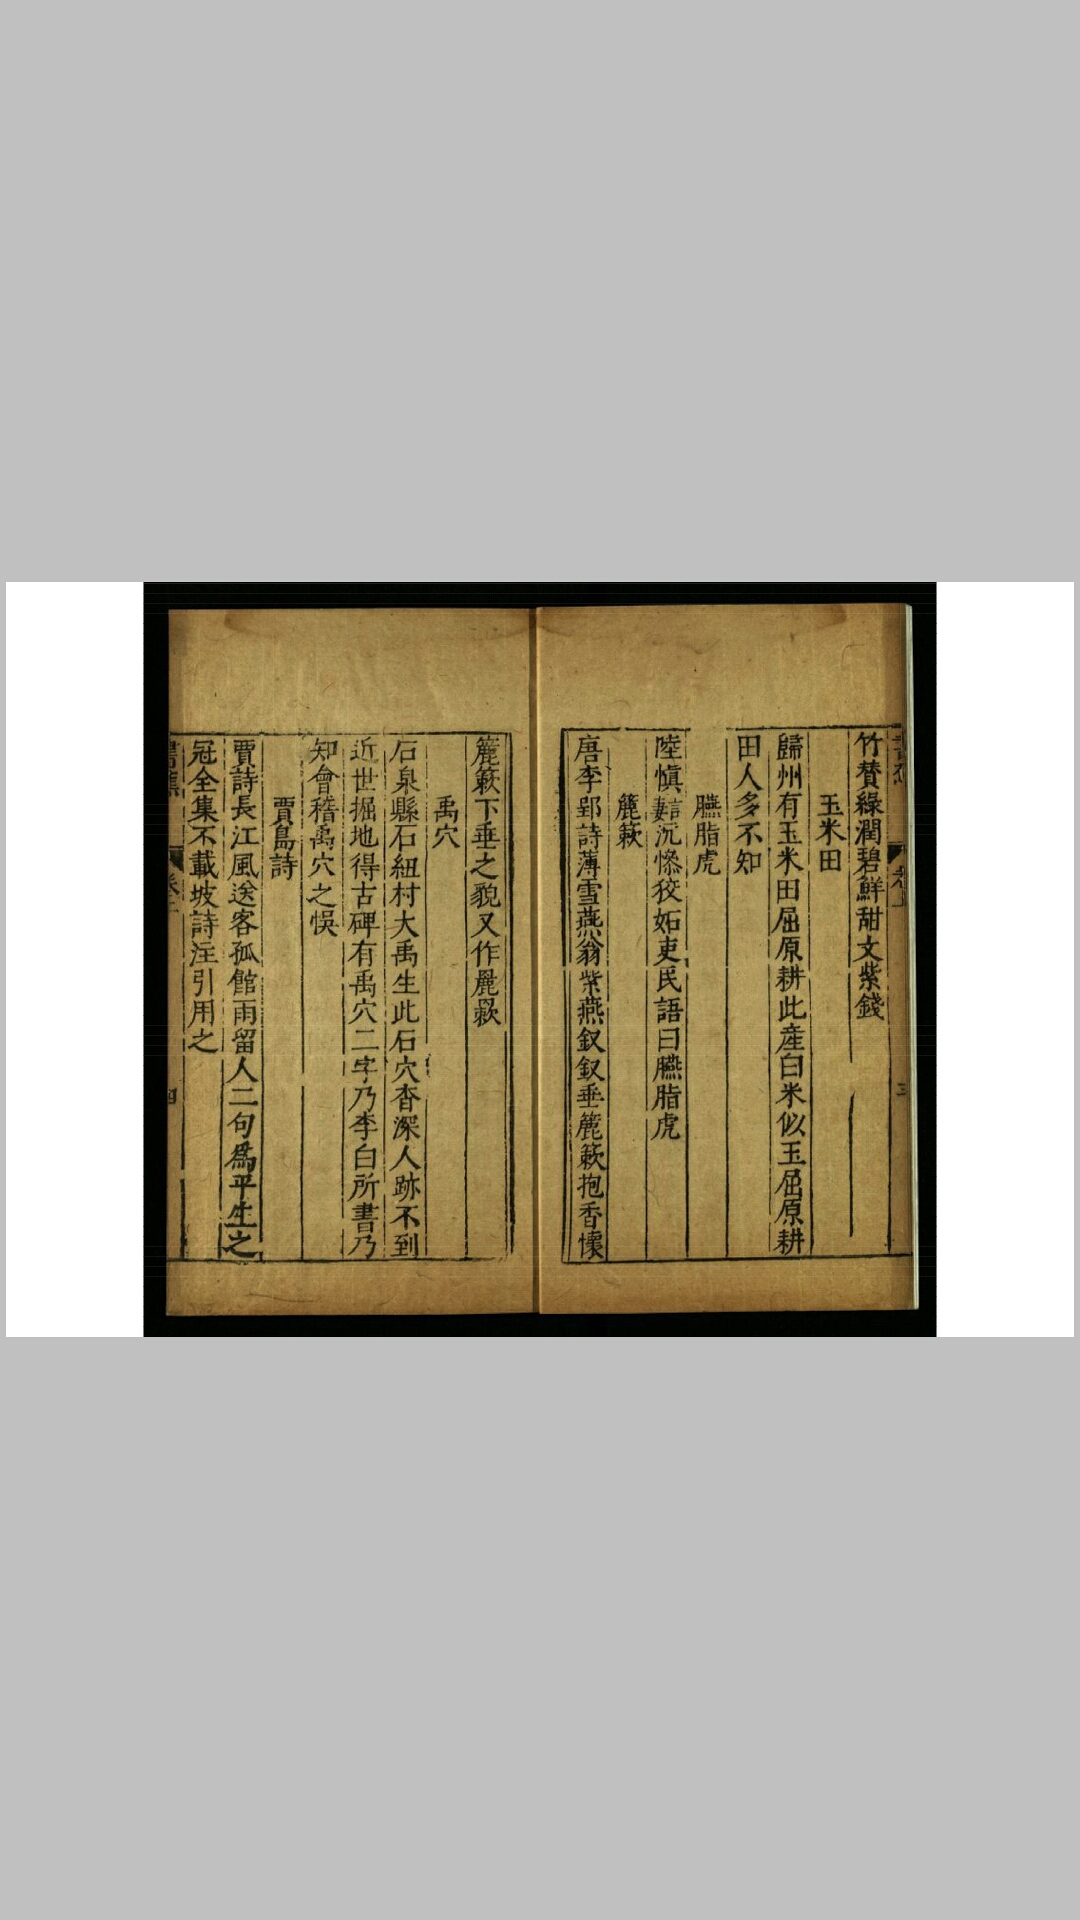 竹賛綠潤碧鮮甜文紫錢
玉米田
歸州有玉米田屈原耕此産白米似玉屈原耕
田人多不知
臙脂虎
陸慎言沉慘狡妬吏民語曰臙脂虎
簏簌
唐李郢詩薄雪燕蓊紫燕釵釵垂簏簌抱香懷
簏簌下垂之貌又作麗
禹穴
石泉縣石紐村大禹生此石穴杳深人跡不到
近世掘地得古碑有禹穴二字乃李白所書乃
知會稽禹穴之悞
賈島詩
賈詩長江風送客孤館雨留人二句爲平生之
冠全集不載坡詩注引用之
四